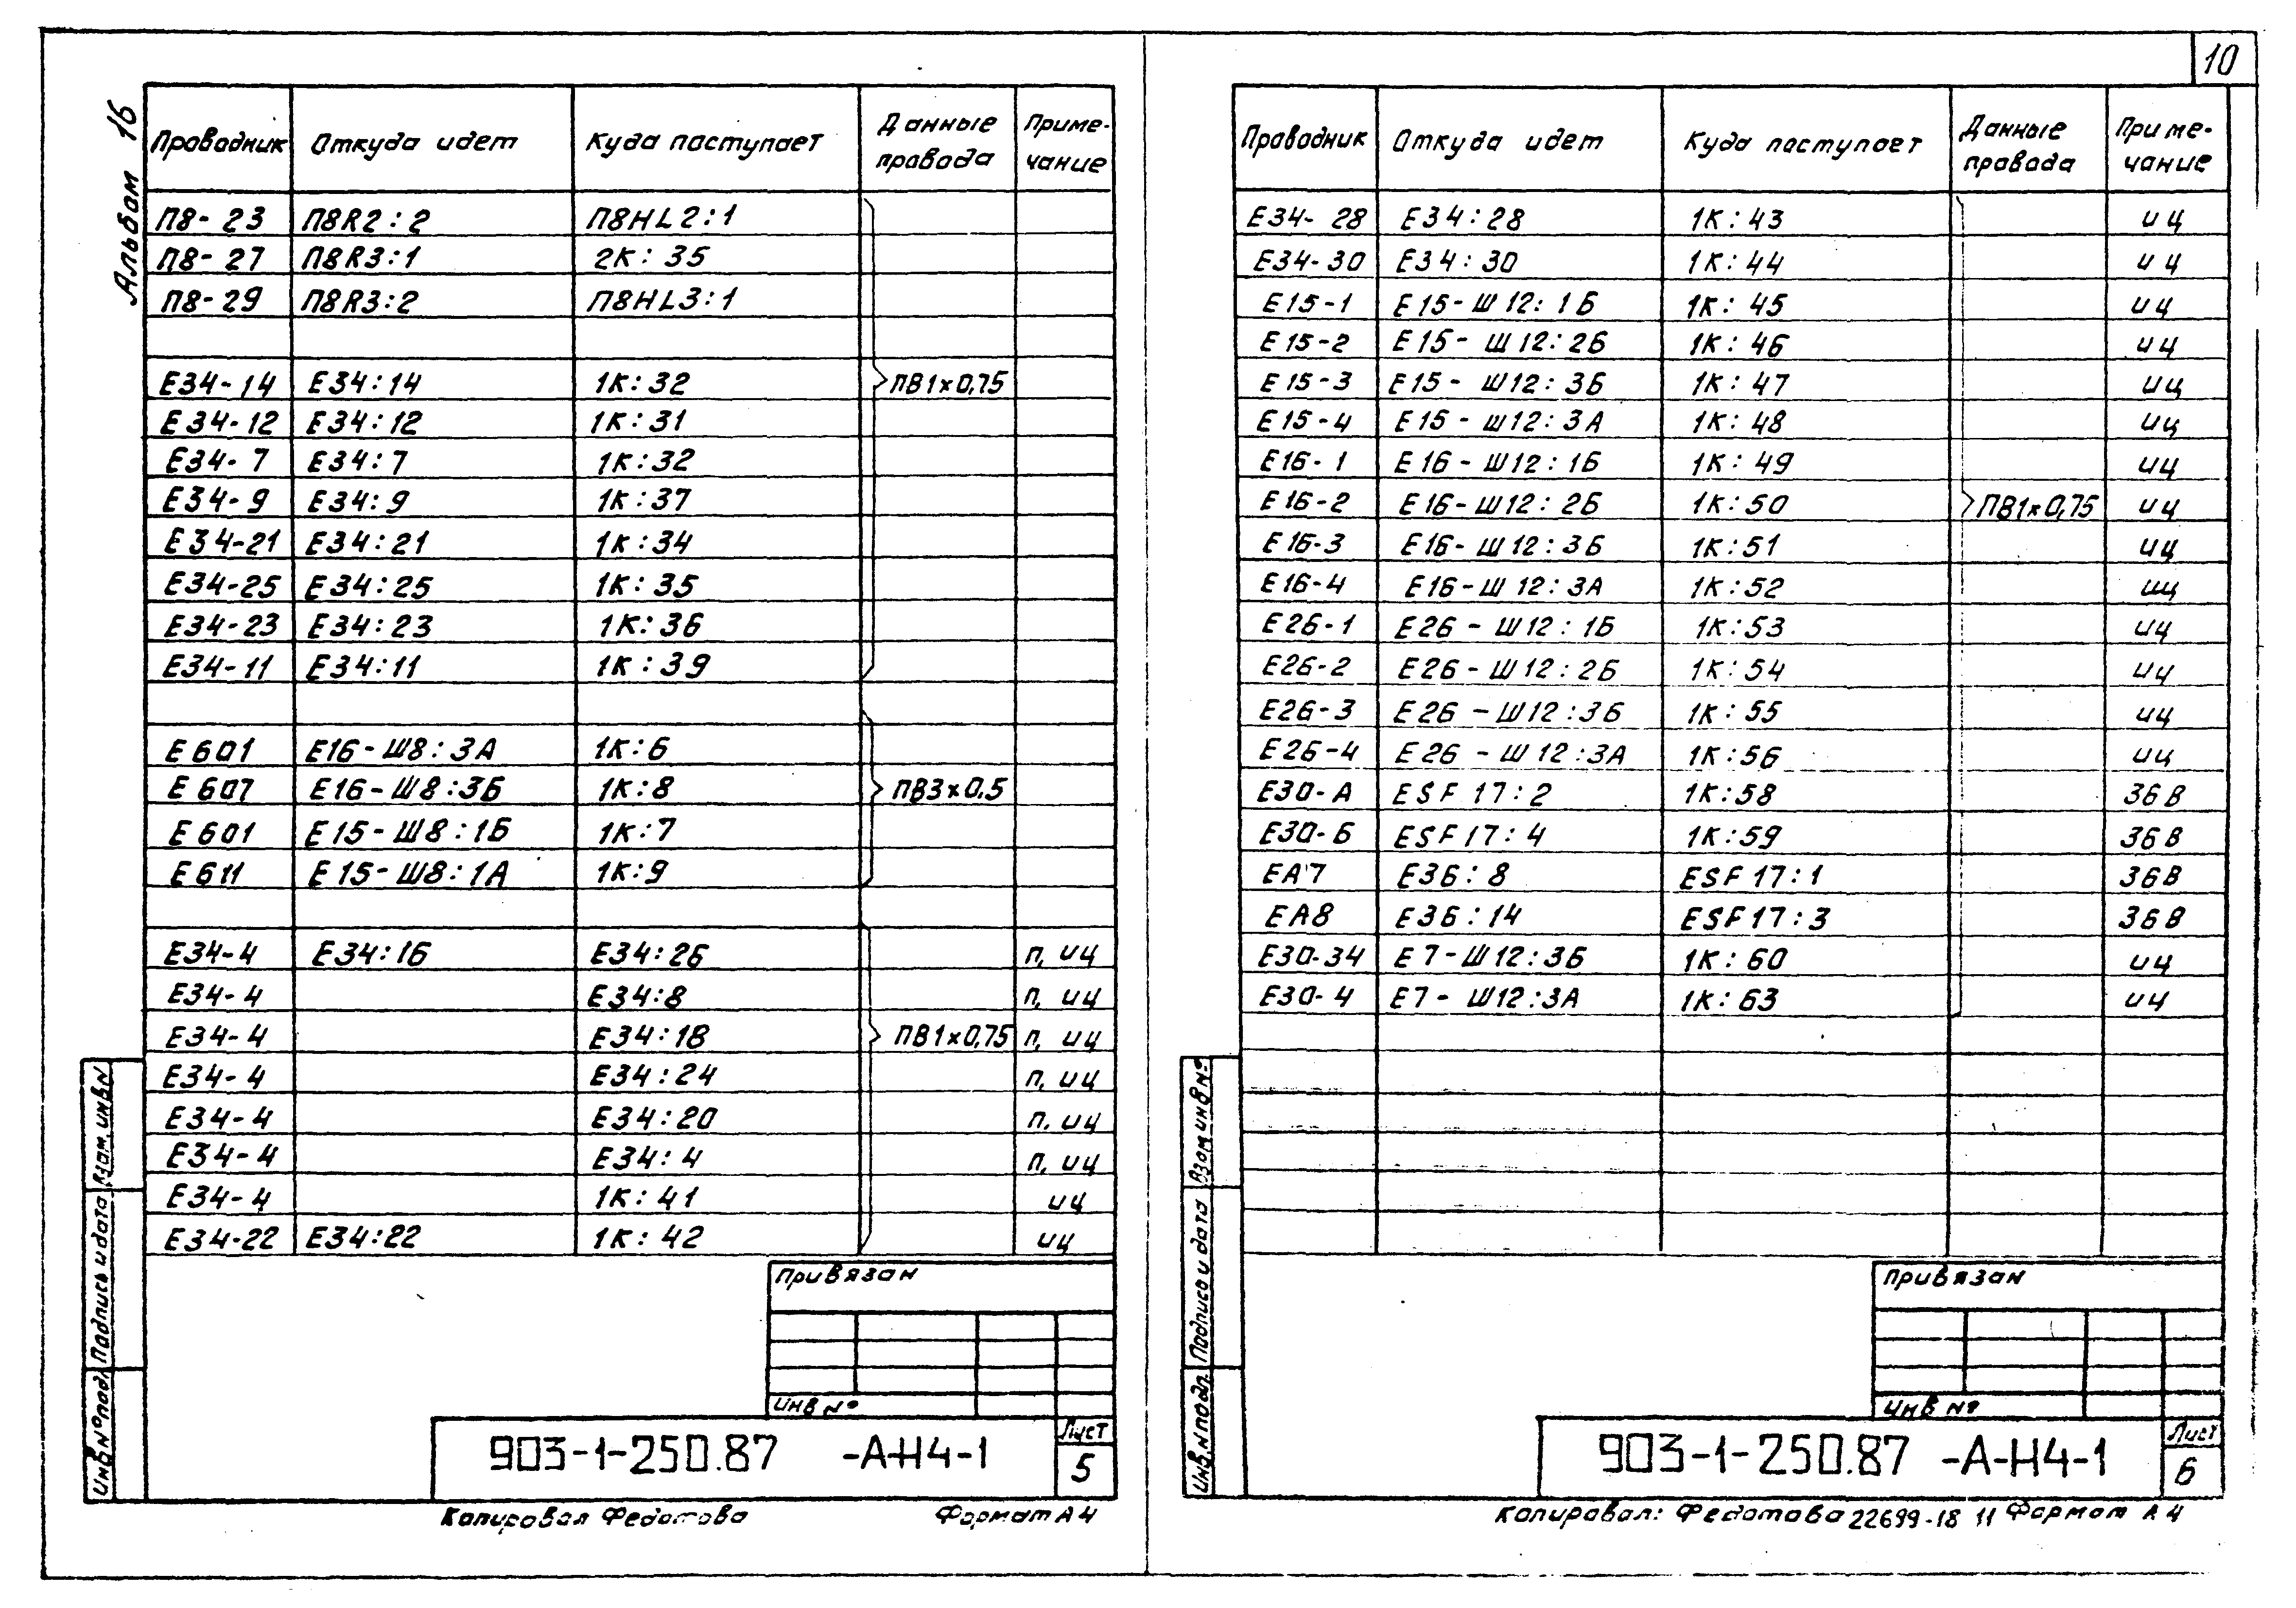 10
Альбом 16
Проводник Откуда идет Куда поступает Данные провода Примечание
П8-23 П8R2:2 П8HL2:1
П8-27 П8R3:1 2К:35
П8-29 П8R3:2 П8HL3:1
Е34-14 Е34:14 1К:32 ПВ1×0,75
Е34-12 Е34:12 1К:31
Е34-7 Е34:7 1К:32
Е34-9 Е34:9 1К:37
Е34-21 Е34:21 1К:34
Е34-25 Е34:25 1К:35
Е34-23 Е34:23 1К:36
Е34-11 Е34:11 1К:39
Е601 Е16-Ш8:3А 1К:6
Е607 Е16-Ш8:3Б 1К:8 ПВ3×0.5
Е601 Е15-Ш8:1Б 1К:7
Е611 Е15-Ш8:1А 1К:9
Е34-4 Е34:16 Е34:26 п, иц
Е34-4 Е34:8 п, иц
Е34-4 Е34:18 ПВ1×0,75 п, иц
Е34-4 Е34:24 п, иц
Е34-4 Е34:20 п, иц
Е34-4 Е34:4 п, иц
Е34-4 1К:41 иц
Е34-22 Е34:22 1К:42 иц
Привязан
Инв №
903-1-250.87 -А-Н4-1
Лист
5
Инв № подл Подпись и дата Взам. инв N
Копировал Федотова Формат А4
Проводник Откуда идет Куда поступает Данные провода Примечание
Е34-28 Е34:28 1К:43 иц
Е34-30 Е34:30 1К:44 иц
Е15-1 Е15-Ш12:1Б 1К:45 иц
Е15-2 Е15-Ш12:2Б 1К:46 иц
Е15-3 Е15-Ш12:3Б 1К:47 иц
Е15-4 Е15-Ш12:3А 1К:48 иц
Е16-1 Е16-Ш12:1Б 1К:49 иц
Е16-2 Е16-Ш12:2Б 1К:50 ПВ1×0,75 иц
Е16-3 Е16-Ш12:3Б 1К:51 иц
Е16-4 Е16-Ш12:3А 1К:52 иц
Е26-1 Е26-Ш12:1Б 1К:53 иц
Е26-2 Е26-Ш12:2Б 1К:54 иц
Е26-3 Е26-Ш12:3Б 1К:55 иц
Е26-4 Е26-Ш12:3А 1К:56 иц
Е30-А ESF17:2 1К:58 36В
Е30-Б ESF17:4 1К:59 36В
ЕА7 Е36:8 ESF17:1 36В
ЕА8 Е36:14 ESF17:3 36В
Е30-34 Е7-Ш12:3Б 1К:60 иц
Е30-4 Е7-Ш12:3А 1К:63 иц
Привязан
Инв №
903-1-250.87 -А-Н4-1
Лист
6
Инв. N подл. Подпись и дата Взам инв №
Копировал: Федотова 22699-18 11 Формат А4